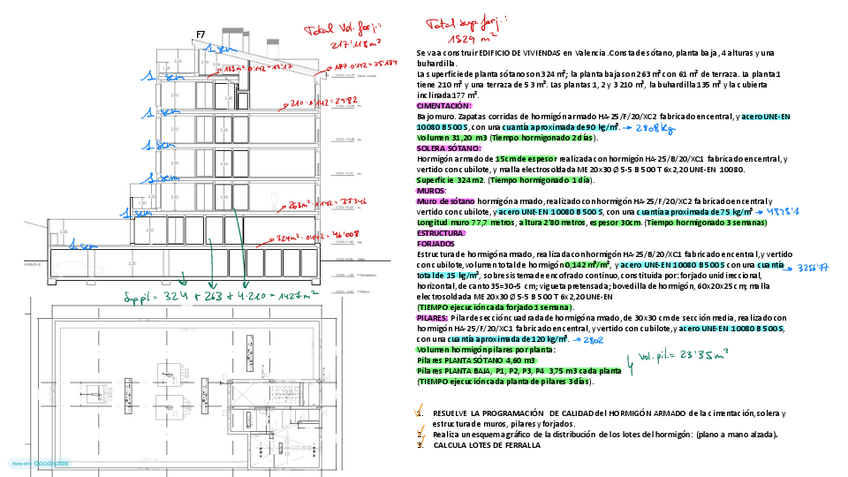 F7
Total Vol. forj.:
217'118m³
1 sem
133m²·0'142=12'17
177·0'142=25'134
1 sem
210·0'142=29'82
1 sem
1 sem
1 sem
263m²·0'142=37'346
1 sem
324m²·0'142=46'008
1 sem
Sup pil = 324 + 263 + 4·210 = 1427m²
Made with Goodnotes
Total sup forj.:
1529 m²
Se va a construir EDIFICIO DE VIVIENDAS en Valencia. Consta de sótano, planta baja, 4 alturas y una
buhardilla.
La superficie de planta sótano son 324 m²; la planta baja son 263 m² con 61 m² de terraza. La planta 1
tiene 210 m² y una terraza de 53 m². Las plantas 1, 2 y 3 210 m², la buhardilla 135 m² y la cubierta
inclinada 177 m².
CIMENTACIÓN:
Bajo muro. Zapatas corridas de hormigón armado HA-25/F/20/XC2 fabricado en central, y acero UNE-EN
10080 B 500 S, con una cuantía aproximada de 90 kg/m³. → 2808 Kg
Volumen 31,20 m3 (Tiempo hormigonado 2 días).
SOLERA SÓTANO:
Hormigón armado de 15cm de espesor realizada con hormigón HA-25/B/20/XC1 fabricado en central, y
vertido con cubilote, y malla electrosoldada ME 20x30 Ø 5-5 B 500 T 6x2,20 UNE-EN 10080.
Superficie 324 m2. (Tiempo hormigonado 1 día).
MUROS:
Muro de sótano hormigón armado, realizado con hormigón HA-25/F/20/XC2 fabricado en central y
vertido con cubilote, y acero UNE-EN 10080 B 500 S, con una cuantía aproximada de 75 kg/m³ → 4895'1
Longitud muro 77,7 metros, altura 2'80 metros, espesor 30cm. (Tiempo hormigonado 3 semanas)
ESTRUCTURA:
FORJADOS
Estructura de hormigón armado, realizada con hormigón HA-25/B/20/XC1 fabricado en central, y vertido
con cubilote, volumen total de hormigón 0,142 m³/m², y acero UNE-EN 10080 B 500 S con una cuantía
total de 15 kg/m³, sobre sistema de encofrado continuo, constituida por: forjado unidireccional,
→ 3256'77
horizontal, de canto 35=30+5 cm; vigueta pretensada; bovedilla de hormigón, 60x20x25 cm; malla
electrosoldada ME 20x30 Ø 5-5 B 500 T 6x2,20 UNE-EN
(TIEMPO ejecución cada forjado 1 semana).
PILARES: Pilar de sección cuadrada de hormigón armado, de 30x30 cm de sección media, realizado con
hormigón HA-25/F/20/XC1 fabricado en central, y vertido con cubilote, y acero UNE-EN 10080 B 500 S,
con una cuantía aproximada de 120 kg/m³. → 2802
Volumen hormigón pilares por planta:
Pilares PLANTA SÓTANO 4,60 m3
Vol. pil. = 23'35 m³
Pilares PLANTA BAJA, P1, P2, P3, P4 3,75 m3 cada planta
(TIEMPO ejecución cada planta de pilares 3 días).
1. RESUELVE LA PROGRAMACIÓN DE CALIDAD del HORMIGÓN ARMADO de la cimentación, solera y
estructura de muros, pilares y forjados.
2. Realiza un esquema gráfico de la distribución de los lotes del hormigón: (plano a mano alzada).
3. CALCULA LOTES DE FERRALLA